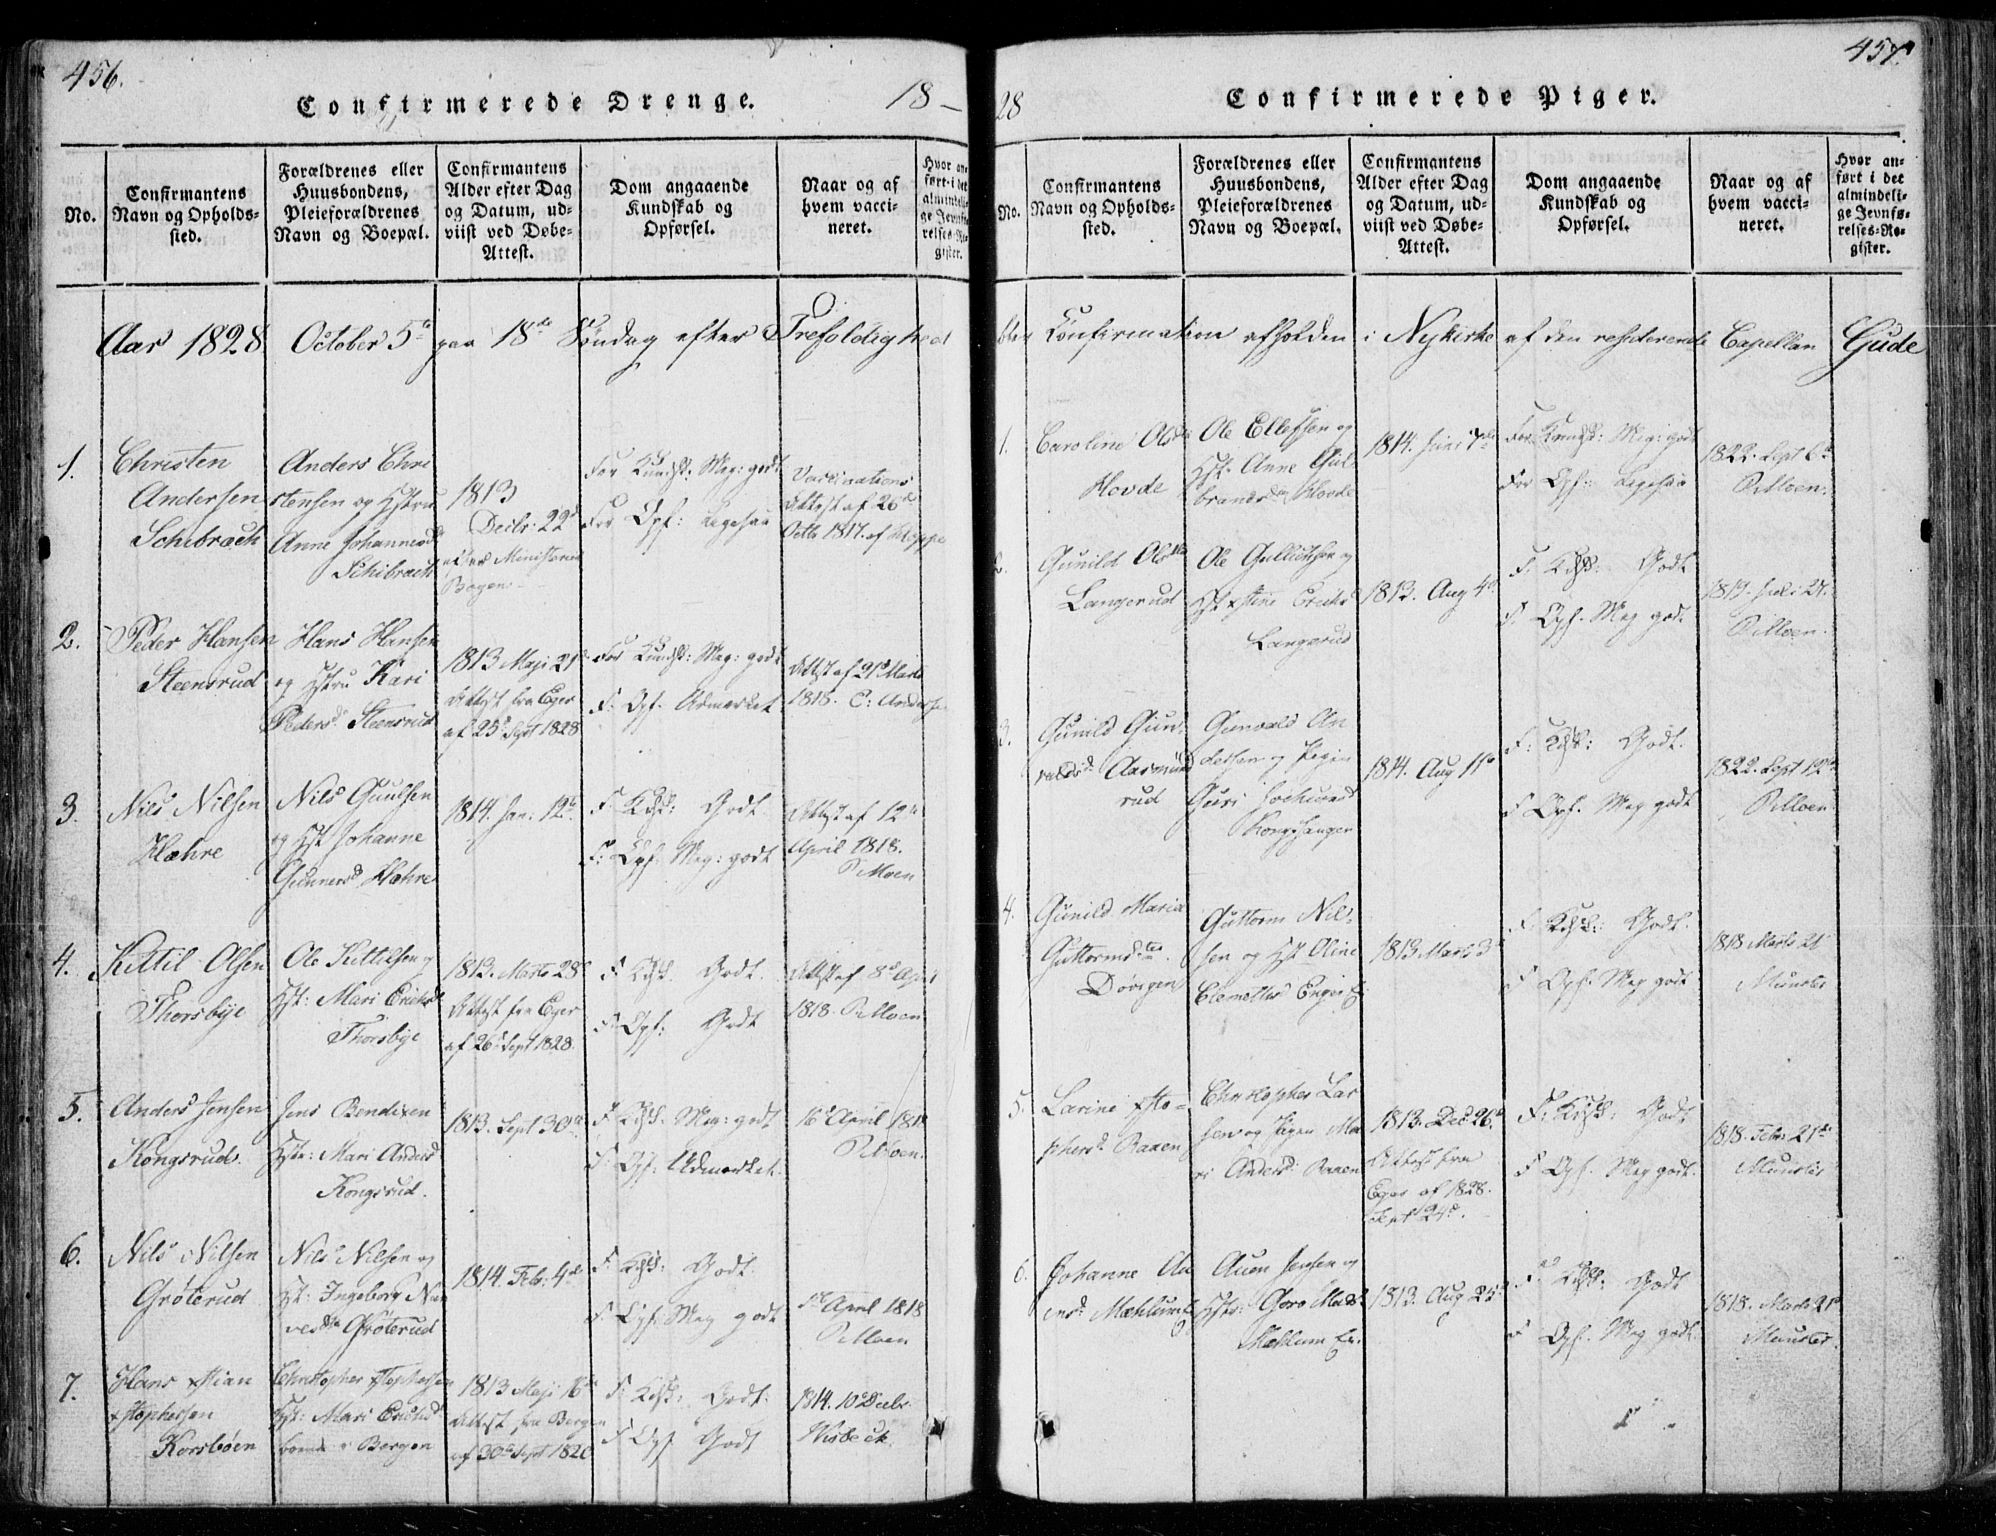 456.
Confirmerede Drenge.
18-
No.
Confirmantens Navn og Opholds-
sted.
Forældrenes eller
Huusbondens,
Pleieforældrenes
Navn og Boepæl.
Confirmantens
Alder efter Dag
og Datum, ud-
viist ved Døbe-
Attest.
Dom angaaende
Kundskab og
Opførsel.
Naar og af
hvem vacci-
neret.
Hvor an-
ført i det
almindeli-
ge Jevnfø-
relses-Re-
gister.
Aar 1828 October 5te paa 18de Søndag efter Trefoldighed
1.
Christen
Andersen
Schibrach
Anders Chri
stensen og Hstru
Anne Johannesd
Schibrach
1813
Decbr: 22d
Ministerial
Bogen
For Kundsk: Meg: godt
For Opf: Ligesaa
Vaccinations
Attest af 26d
Octb 1817. af Kloppe
2.
Peder Hansen
Steensrud
Hans Hansen
og Hstru Kari
Pedersd Steensrud
1813 Maji 21
Attest fra Eger
af 25d Sept 1828
For Kundsk: Meg: godt
F: Opf. Udmærket
Attst af 21d Marts
1818. C: Andersen
3.
Nils Nilsen
Hæhre
Nils Guulsen
og Hst Johanne
Gunnersd Hæhre
1814. Jan: 12te
F: Kdsk: Godt
F: Opf. Meg: godt
Attst af 12te
April 1818.
P. Moen
4.
Kittil Olsen
Thorsbye
Ole Kittilsen og
Hst: Mari Ericksd
Thorsbye
1813. Marts 28
Attest fra Eger
af 26d Sept 1828.
F: Kdsk: Godt.
F: Opf: Godt
Attst af 8d April
1818. P. Moen
5.
Anders Jensen
Kongsrud.
Jens Bendixen
Hstr: Mari Andersd
Kongsrud.
1813. Sept 30te
F: Kdsk. Meg: godt
F: Opf: Udmærket.
16d April 1818
P. Moen.
6.
Nils Nilsen
Grøterud
Nils Nilsen og
Hst: Ingeborg
Grøterud
1814. Feb: 4de
F: Kdsk: Godt.
F. Opf. Meg godt
April 1818
P. Moen
7.
Hans Xstian
Xstophersen
Korsbøen
Christopher Xstophersen
Hst: Mari
Bergen
1813 Maji 16de
Attest fra Bergen
af 30te Sept 1828
F: Kdsk: Godt.
F Opf Godt
1814. 10d Decbr.
Wisbeck.
28
Confirmerede Piger.
457.
No.
Confirmantens
Navn og Opholds-
sted.
Forældrenes eller
Huusbondens,
Pleieforældrenes
Navn og Boepæl.
Confirmantens
Alder efter Dag
og Datum, ud-
viist ved Døbe-
Attest.
Dom angaaende
Kundskab og
Opførsel.
Naar og af
hvem vacci-
neret.
Hvor an-
ført i det
almindeli-
ge Jevnfø-
relses-Re-
gister.
blev Confirmation afholden i Nykirke af den residerende Capellan Gude
1.
Caroline Olsd
Hovde
Ole Ellefsen og
Hst. Anne Gul
brandsd Hovde
1814. Juni 7de
For Kundsk: Meg: godt
For Opf: Ligesaa
1822. Sept 6te
P. Moen.
2.
Gunild Olsd
Langerud
Ole Gulliksen og
Hst Xstine Eriksd
Langerud
1813. Aug 4d
F. Kdsk: Godt
F. Opf. Meg god.
1819. Juli 27.
P. Moen.
3.
Gunild Gun-
valdsd. Aasmund
rud
Gunvald An
dersen og Pigen
Guri
Kongshaugen
1814. Aug 11te
F: Kdsk: Godt.
F Opf. Meg godt
1822. Sept 12te
P. Moen
4.
Gunild Maria
Guttormdter.
Døvigen
Guttorm Nil-
sen og Hst Oline
Clemetsd Enger E
1813 Marts 3
F. Kdsk: Godt.
F Opf. Meg godt.
1818 Marts 21
Munster
5.
Larine Xsto-
phersd. Raaen
Christopher Lar
sen og Pigen Ma
ri Andersd Raaen
1813. Dec 26.
Attest fra
Eger af 1828.
Sept 24d.
F: Kdsk: Godt
F Opf. Meg godt.
1818. Febr 21de
Munster
6.
Johanne Au
ensd. Mæhlum E
Auen Jensen og
Hstr: Goro Madsd
Mæhlum Ei.
1813. Aug 25d
F. Kdsk: Godt
F Opf. Meg godt
1818. Marts 21d
Munster.